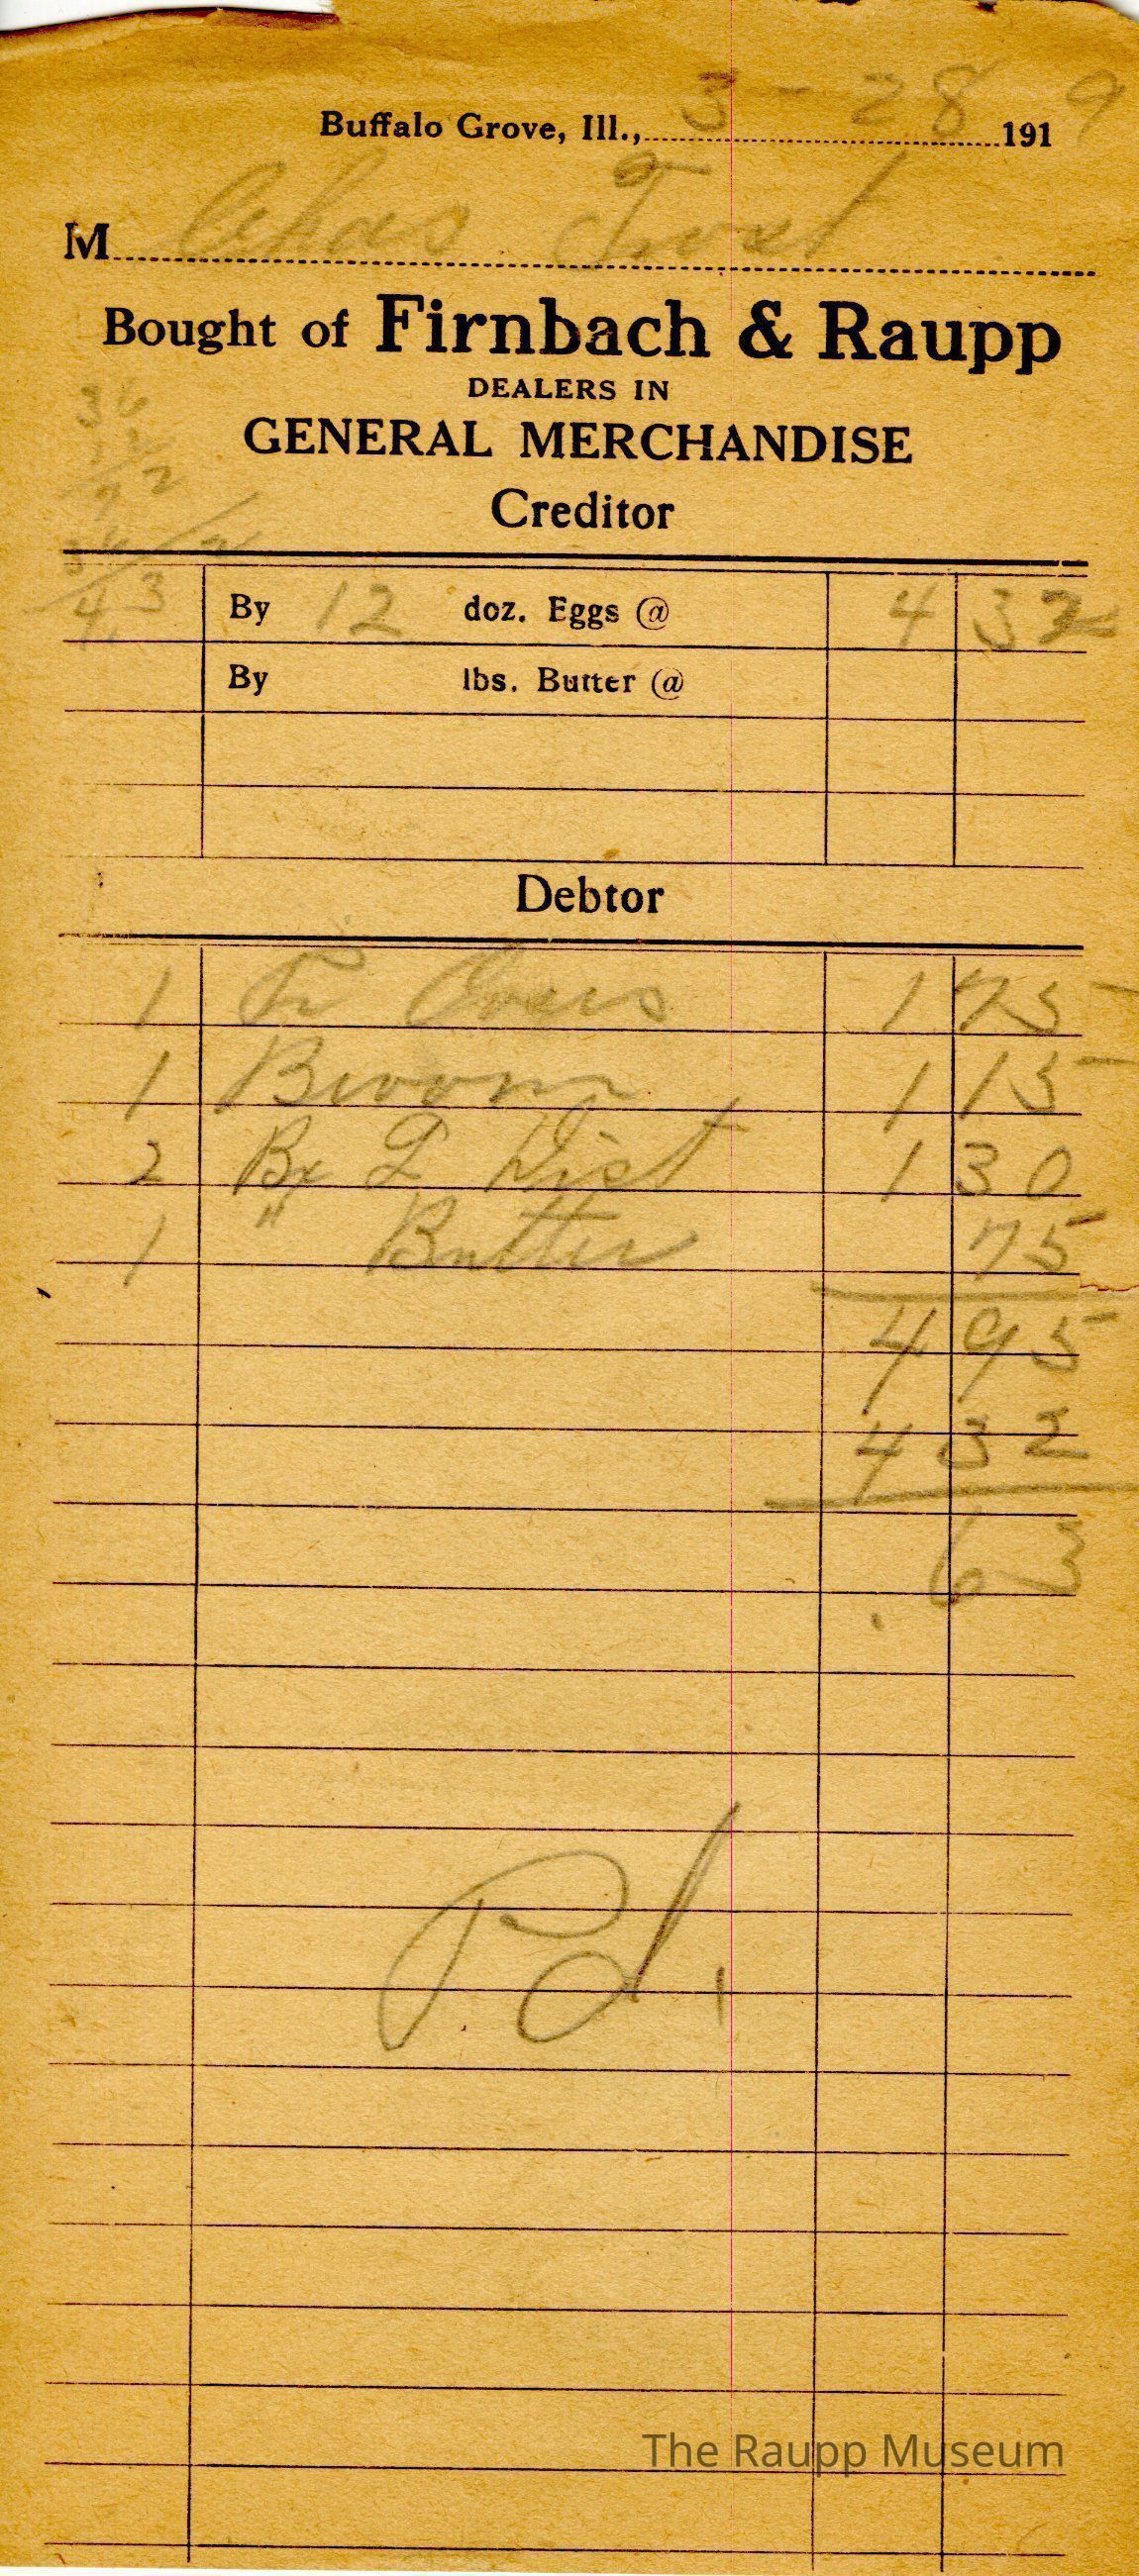 3 - 28 9
Buffalo Grove, Ill., 191
M Chas
Bought of Firnbach & Raupp
DEALERS IN
GENERAL MERCHANDISE
Creditor
36
12
72
36
432
By 12 doz. Eggs @ 4 32
By lbs. Butter @
Debtor
1 Overs 1 75
1 Broom 1 15
2 1 30
1 " Butter 75
4 95
4 32
.63
Pd.
The Raupp Museum